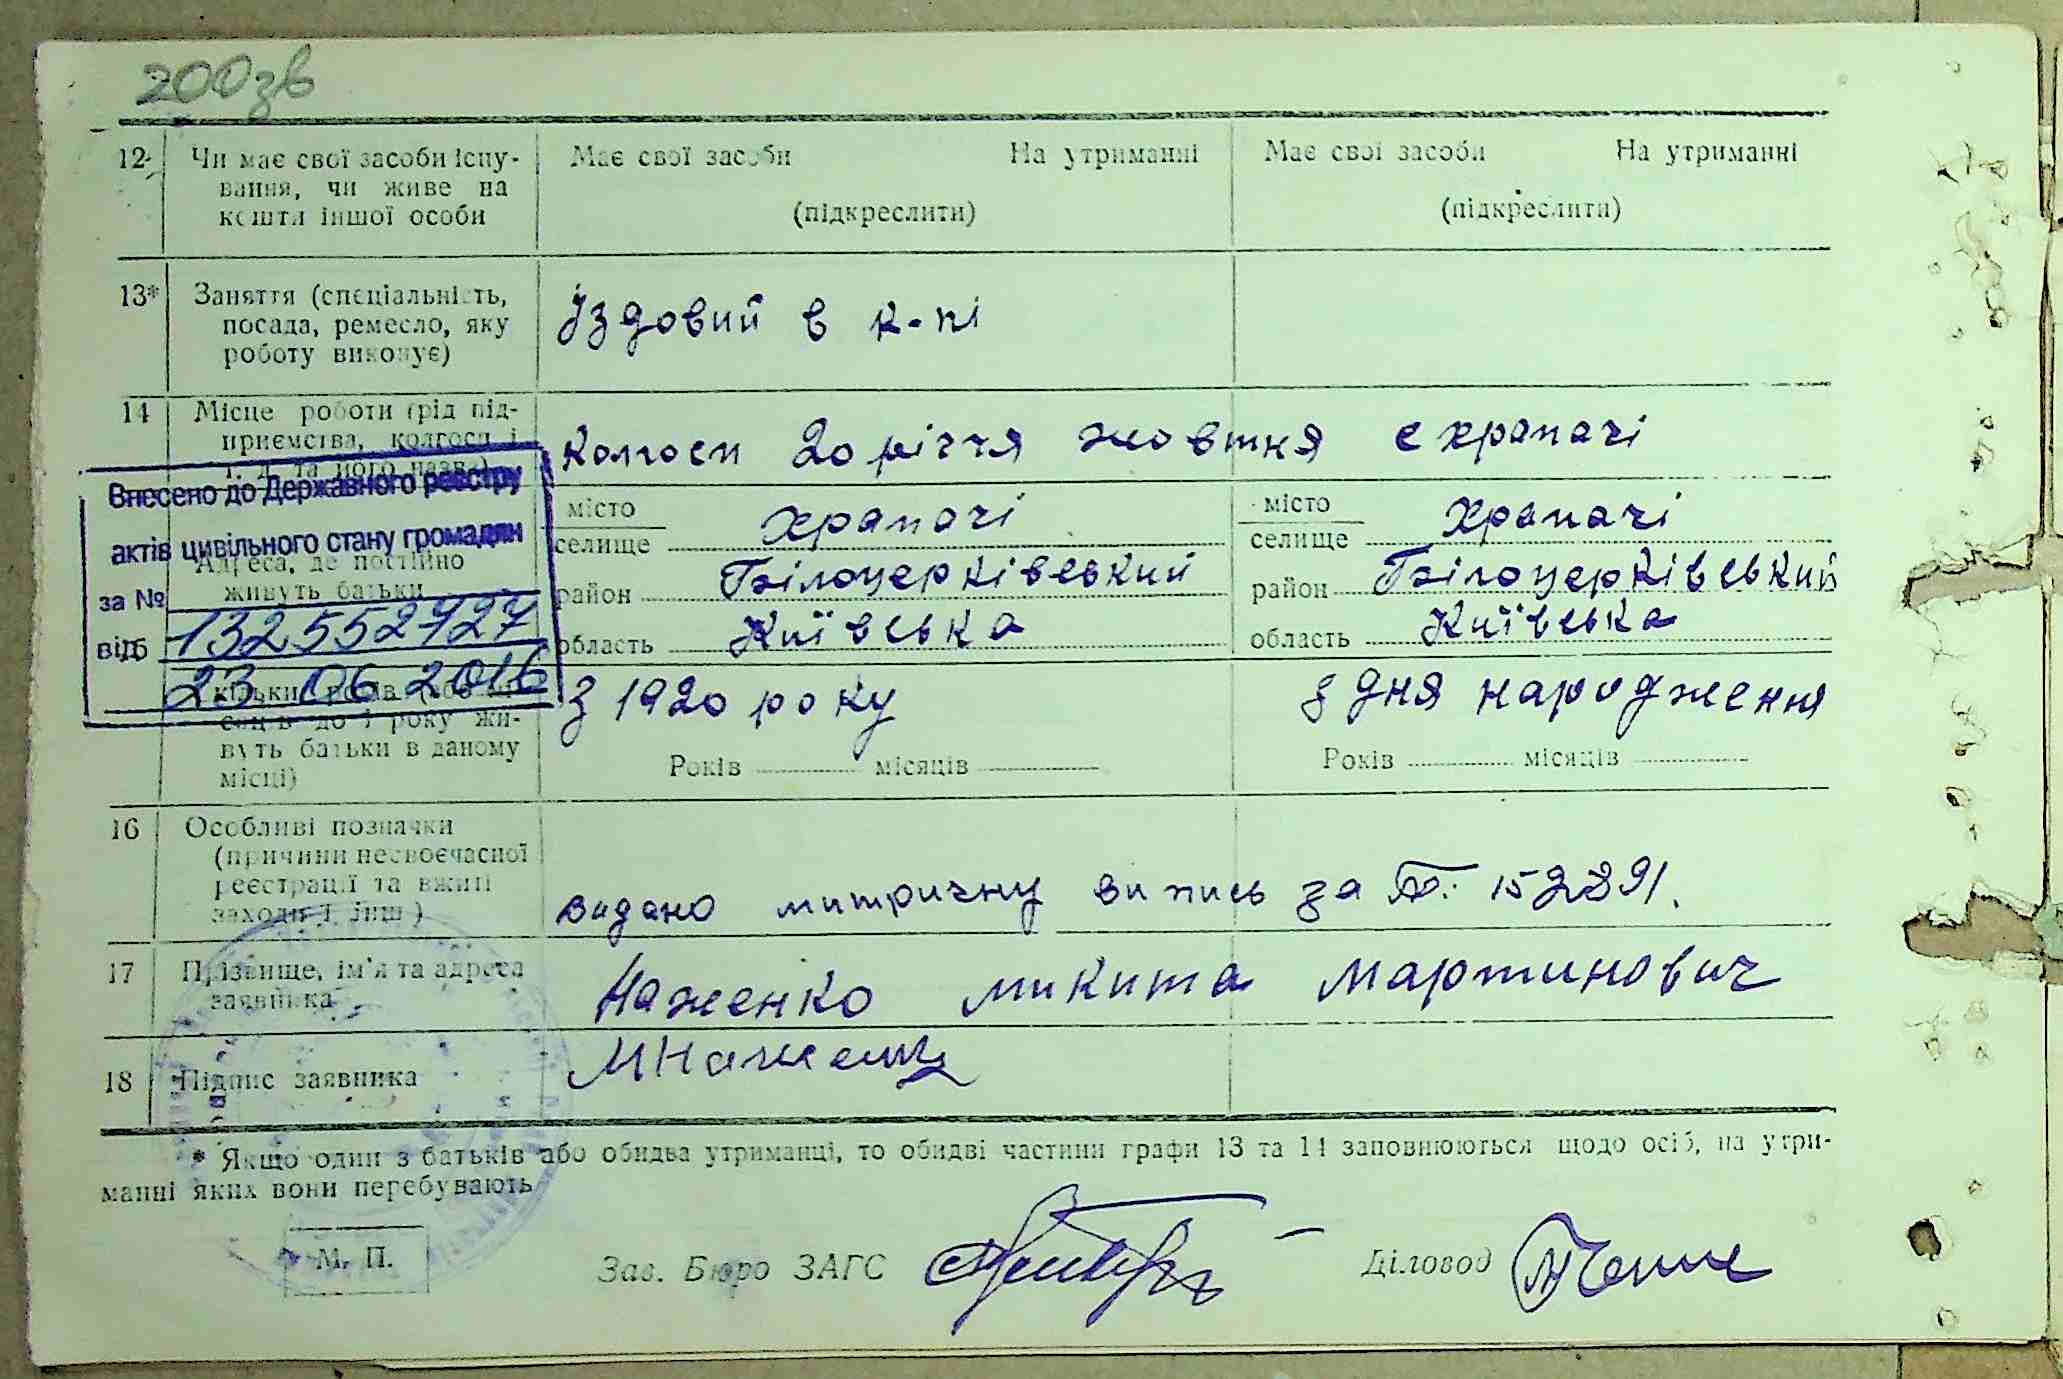 200зв
12 Чи має свої засоби існу- Має свої засоби На утриманні Має свої засоби На утриманні
вання, чи живе на
кошти іншої особи (підкреслити) (підкреслити)
13* Заняття (спеціальність,
посада, ремесло, яку Їздовий в к-пі
роботу виконує)
14 Місце роботи (рід під-
приємства, колгосп і Колгосп 20 річчя жовтня с храпачі
т. д. та його назва)
Внесено до Державного реєстру
актів цивільного стану громадян
за № 132552727
від 23 06 2016
15 Адреса, де постійно
живуть батьки
місто місто
селище храпачі селище храпачі
район Білоцерківський район Білоцерківський
область Київська область Київська
З 1920 року з дня народження
до 1 року жи-
вуть батьки в даному
місці) Років місяців Років місяців
16 Особливі позначки
(причини несвоєчасної
реєстрації та вжиті
заходи і інш.) видано митричну випись за №: 152891.
17 Прізвище, ім'я та адреса
заявника Наженко микита мартинович
18 Підпис заявника
* Якщо один з батьків або обидва утриманці, то обидві частини графи 13 та 14 заповнюються щодо осіб, на утри-
манні яких вони перебувають
М. П. Зав. Бюро ЗАГС Діловод